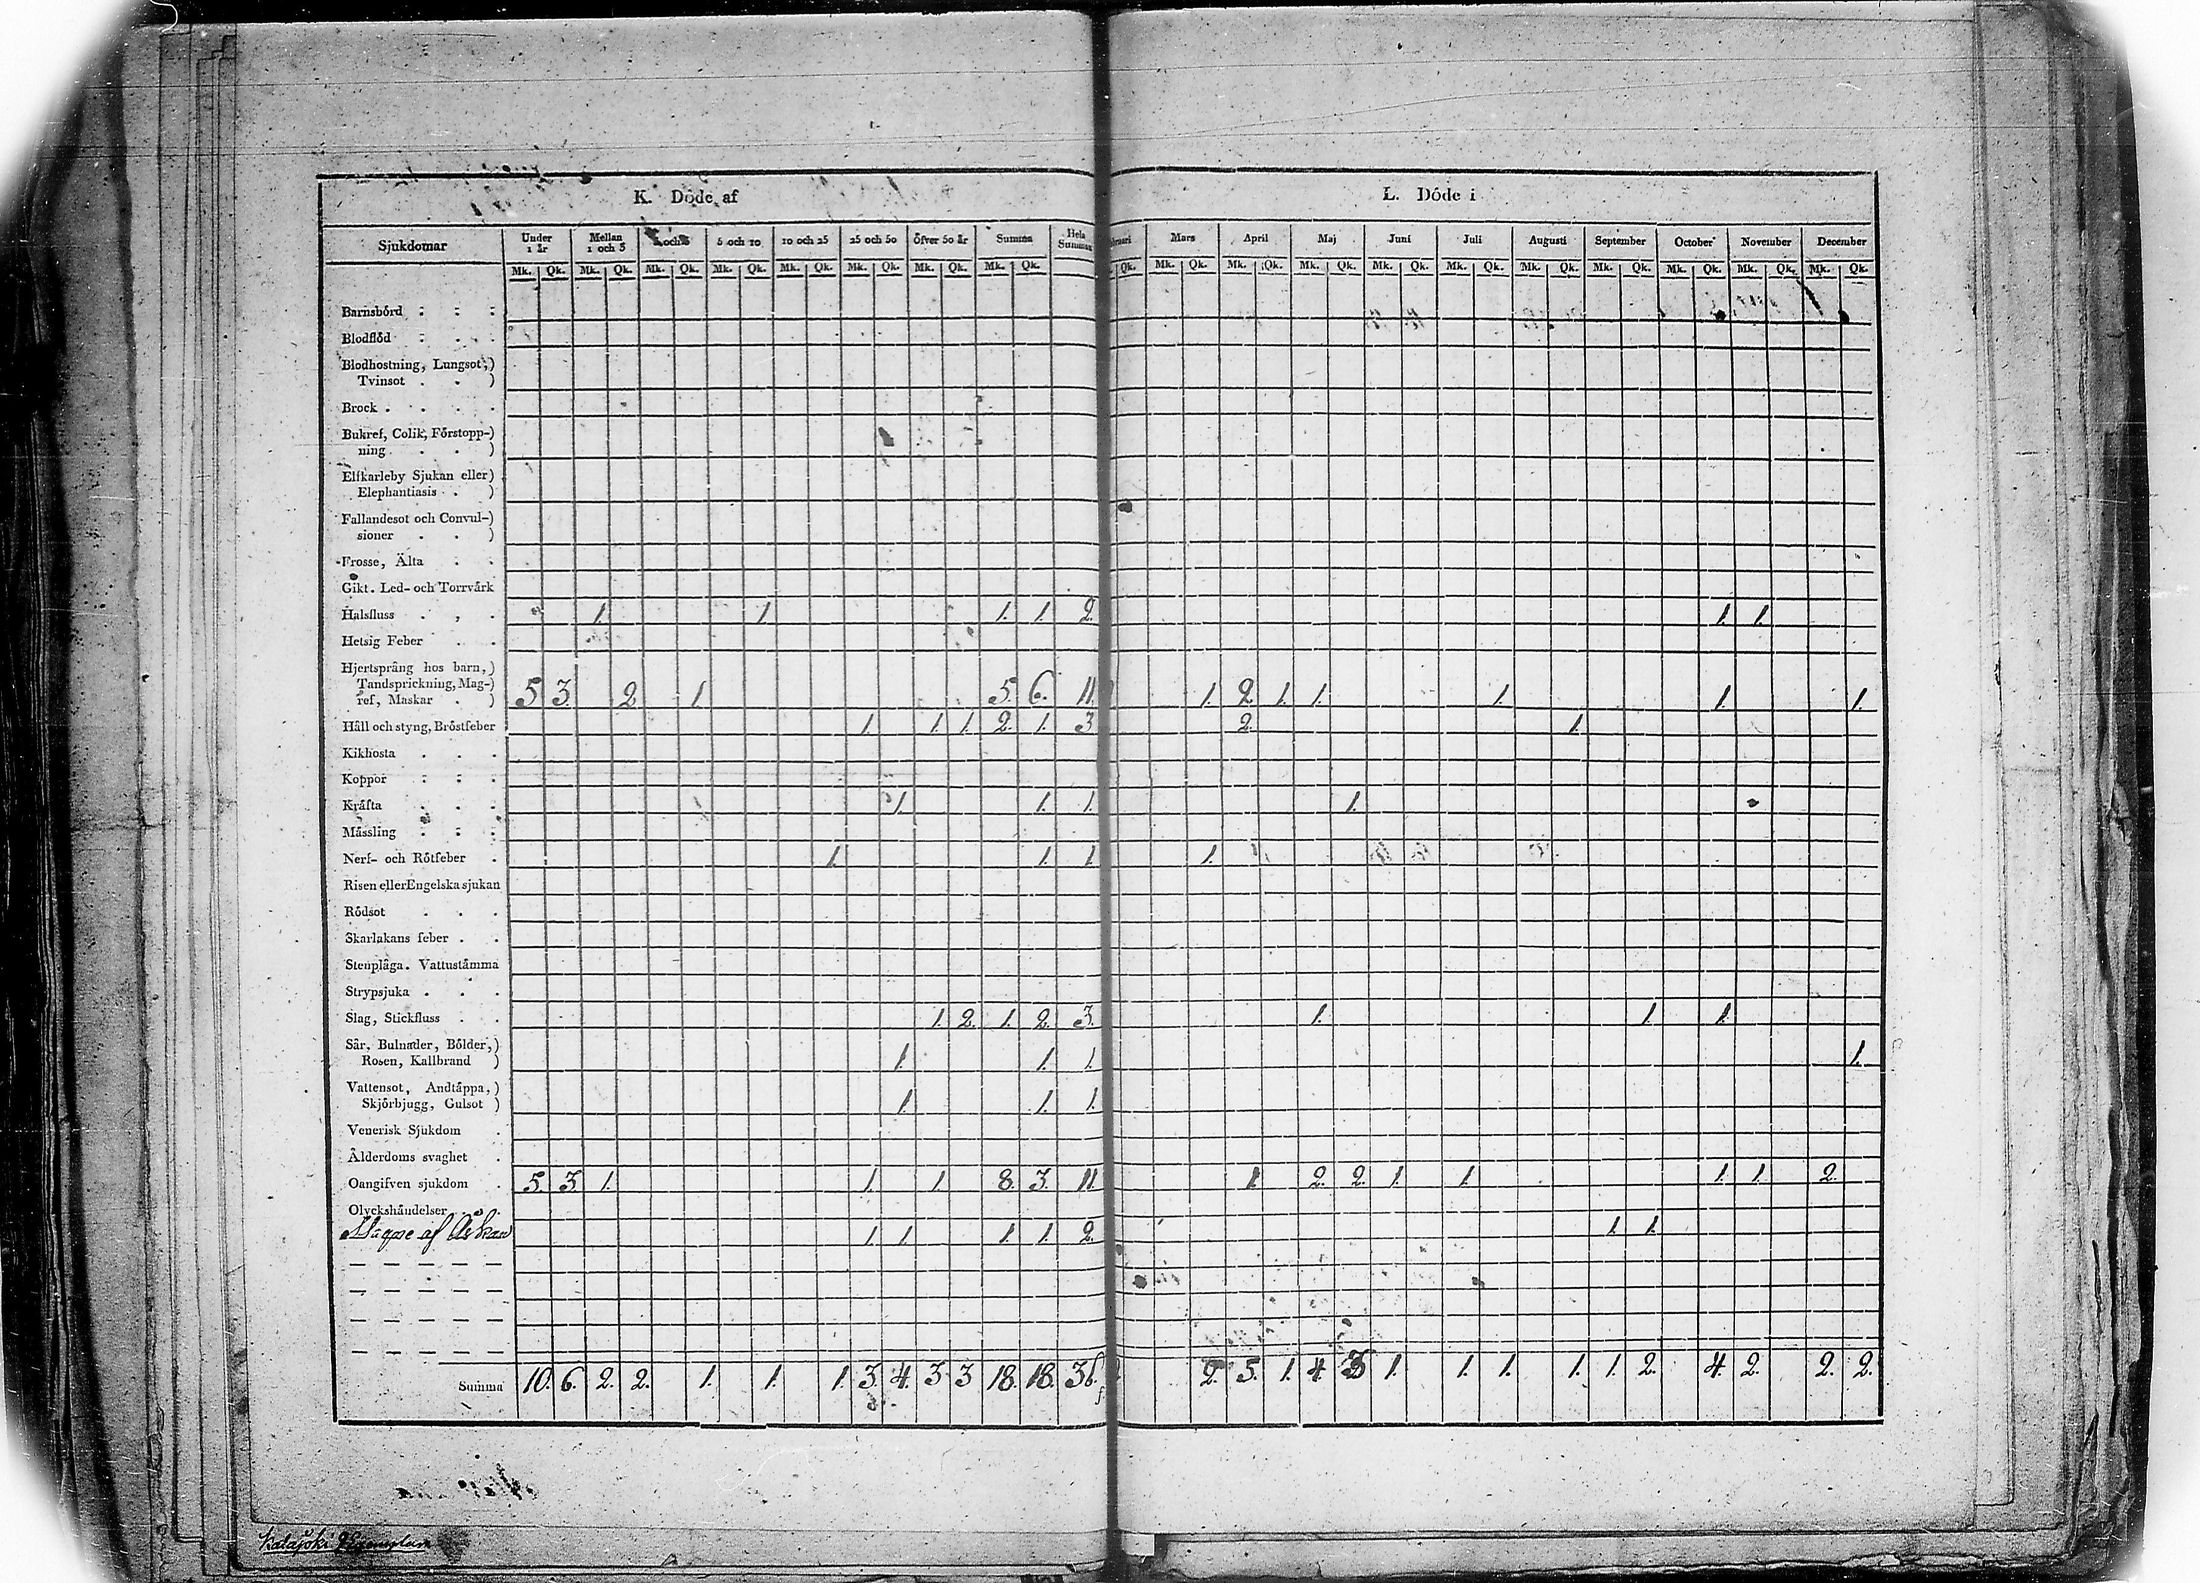 K. Döde af
L. Döde i
Sjukdomar Under 1 år Mellan 1 och 3 5 och 10 10 och 25 25 och 50 Öfver 50 år Summa Hela Summan
Mars April Maj Juni Juli Augusti September October November December
Mk. Qk. Mk. Qk. Mk. Qk. Mk. Qk. Mk. Qk. Mk. Qk. Mk. Qk. Mk. Qk.
Qk. Mk. Qk. Mk. Qk. Mk. Qk. Mk. Qk. Mk. Qk. Mk. Qk. Mk. Qk. Mk. Qk. Mk. Qk. Mk. Qk.
Barnsbörd
Blodflöd
Blodhostning, Lungsot,)
Tvinsot . . )
Brock . . . .
Bukref, Colik, Förstopp-)
ning . . . )
Elfkarleby Sjukan eller)
Elephantiasis . )
Fallandesot och Convul-)
sioner . . )
Frosse, Älta
Gikt. Led- och Torrvärk
Halsfluss 1. 1. 1. 1. 2. 1. 1.
Hetsig Feber
Hjertsprång hos barn, )
Tandsprickning, Mag-)
ref, Maskar . ) 5 3. 2 1. 5. 6. 11. 1. 2. 1. 1. 1. 1. 1.
Håll och styng, Bröstfeber 1. 1. 1. 2. 1. 3 2. 1.
Kikhosta
Koppor
Kräfta 1. 1. 1. 1.
Mässling
Nerf- och Rötfeber 1. 1. 1. 1.
Risen eller Engelska sjukan
Rödsot
Skarlakans feber
Stenplåga. Vattustämma
Strypsjuka
Slag, Stickfluss 1. 2. 1. 2. 3. 1. 1. 1.
Sår, Bulnader, Bölder,)
Rosen, Kallbrand ) 1. 1. 1. 1.
Vattensot, Andtäppa, )
Skjörbjugg, Gulsot ) 1. 1. 1.
Venerisk Sjukdom
Ålderdoms svaghet
Oangifven sjukdom 5. 3. 1. 1. 1. 8. 3. 11. 1. 2. 2. 1. 1. 1. 1. 2.
Olyckshändelser
af Åskan 1. 1. 1. 1. 2. 1. 1.
Summa 10. 6. 2. 2. 1. 1. 1. 3. 4. 3 3 18. 18. 36. 2. 5. 1. 4. 3 1. 1. 1. 1. 1. 2. 4. 2. 2. 2.